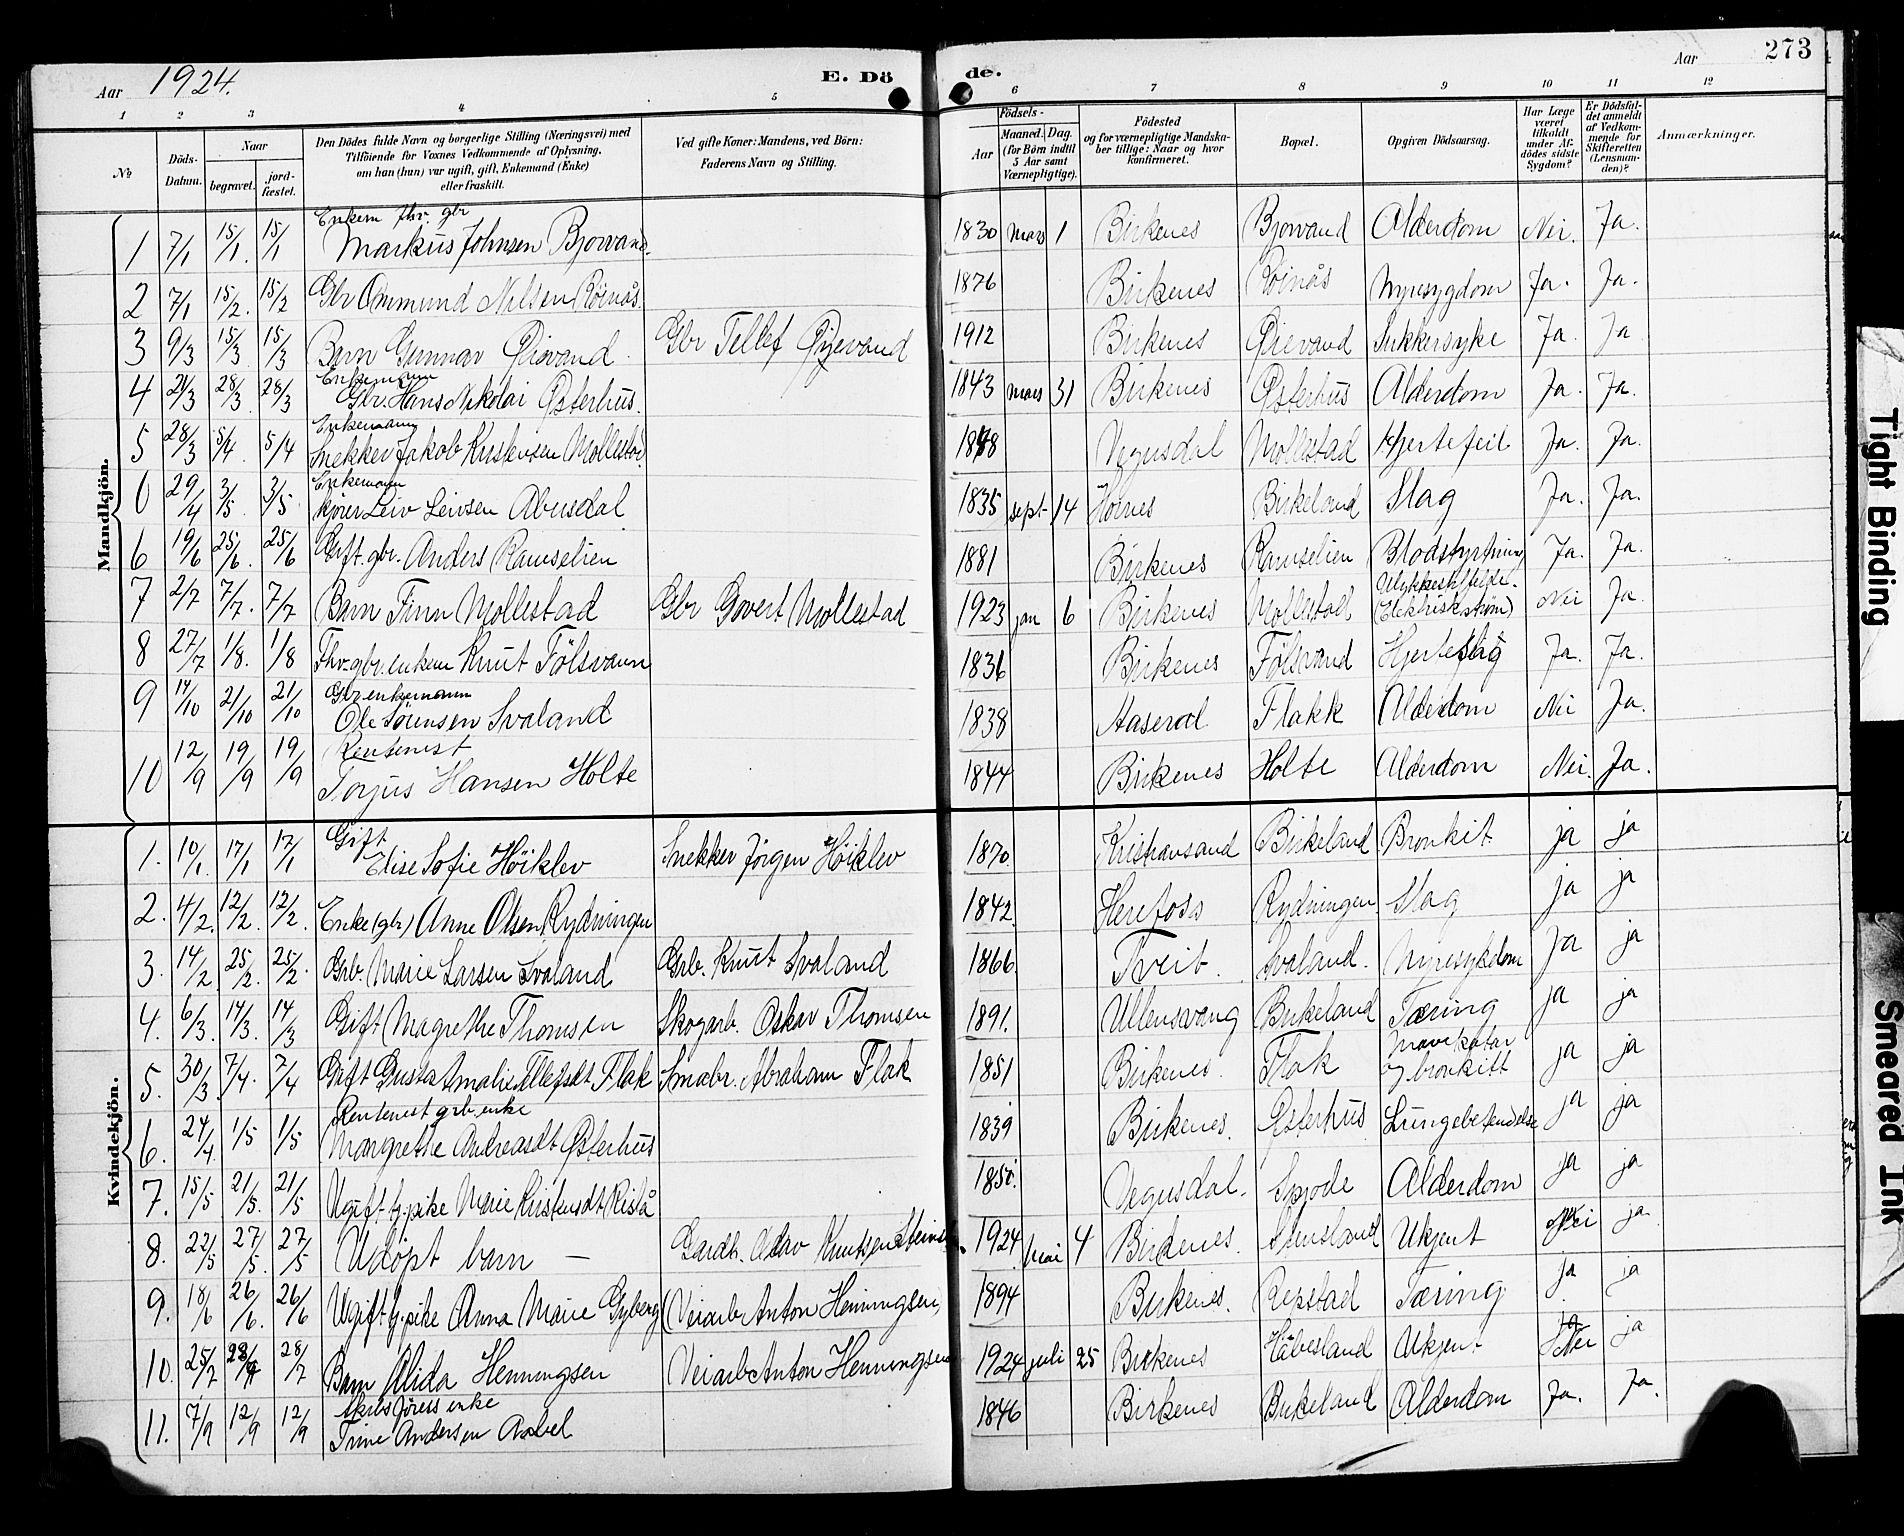 Aar 1924. E. Dö de. Aar 273
1 2 3 4 5 6 7 8 9 10 11 12
№ Döds-Datum. Naar begravet. jord-fæstet. Den Dödes fulde Navn og borgerlige Stilling (Næringsvei) med Tilföiende for Voxnes Vedkommende af Oplysning. om han (hun) var ugift, gift, Enkemand (Enke) eller fraskilt. Ved gifte Koner: Mandens, ved Börn: Faderens Navn og Stilling. Födsels- Aar Maaned. Dag. (for Börn indtil 5 Aar samt Værnepligtige). Födested og for værnepligtige Mandskaber tillige: Naar og hvor konfirmeret. Bopæl. Opgiven Dödsaarsag. Har Læge været tilkaldt under Afdödes sidste Sygdom? Er Dödsfaldet anmeldt af Vedkommende for Skifteretten (Lensmanden)? Anmærkninger.
Mandkjön.
1 7/1 15/1 15/1 Enkem fhv. gbr Markus Johnsen Bjorvand. 1830 mars 1 Birkenes Bjorvand Alderdom Nei. Ja.
2 7/1 15/2. 15/2 Gbr Ommund Nilsen Röinås. 1876 Birkenes Röinås Nyresygdom Ja. Ja.
3 9/3 15/3 15/3 Barn Gunnar Øievand Gbr Tellef Øijevand 1912 Birkenes Øievand Sukkersyke Ja. Ja
4 21/3 28/3 28/3 Enkemann Gbr. Hans Nikolai Østerhus. 1843 mars 31 Birkenes Østerhus Alderdom Ja. Ja.
5 28/3 5/4 5/4 Enkemann Snekker Jakob Kristensen Mollestad. 1848 Vegusdal Mollestad Hjertefeil Ja. Ja.
6 29/4 3/5. 3/5 Enkemann kjörer Leiv Leivsen Abusdal 1835 sept 14 Birkeland Slag Ja. Ja.
6 19/6 25/6. 25/6 Gift. gbr. Anders Ramselien 1881 Birkenes Ramselien Blodstyrtning Ja. Ja.
7 2/7 7/7. 7/7 Barn Finn Mollestad Gbr Govert Mollestad 1923 jan 6 Birkenes Mollestad Ulykkestilfelde. (Elektrisk ström) Nei Ja.
8 27/7 1/8. 1/8 Fhv. gbr. enkem Knut Fölsvann 1836 Birkenes Fölsvand Hjerteslag Ja. Ja.
9 14/10 21/10 21/10 Gbr enkemann Ole Sörensen Svaland 1838 Aaseral Flakk Alderdom Nei Ja.
10 12/9 19/9 19/9 Rentenist Torjus Hansen Holte 1844 Birkenes Holte Alderdom Nei. Ja.
Kvindekjön.
1. 10/1. 17/1 17/1 Gift Elise Sofie Höiklev Snekker Jörgen Höiklev 1870. Kristiansand Birkeland Bronkit. ja ja
2. 4/2. 12/2. 12/2. Enke (gbr) Anne Olsen Rydningen 1842. Herefoss Rydningen. Slag ja ja
3. 14/2 25/2. 25/2. Grb. Marie Larsen Svaland Grb. Knut Svaland 1866. Tveit. Svaland. Nyresykdom Ja ja
4. 6/3. 14/3. 14/3 Gift Magrethe Thomsen Skogarb. Oskar Thomsen 1891. Ullensvang Birkeland Tæring ja ja
5. 30/3 7/4. 7/4 Gift Gusta Amalie Tellefsdt Flak Smabr. Abraham Flak 1851 Birkenes. Flak Mavekatar og bronkitt ja ja
6. 24/4 1/5 1/5 Rentenist grb. enke Margrethe Andreasdt Østerhus 1839 Birkenes. Østerhus Lungebetendelse ja ja
7. 15/5 21/5. 21/5 Ugift tj. pike Marie Kristensdt Rislå 1850. Vegusdal. Alderdom ja ja
8. 22/5 27/5. 27/5 Udöpt barn — Gardb. Olav Knutsen 1924 mai 4 Birkenes. Ukjent Nei ja
9. 18/6 26/6. 26/6 Ugift tj. pike Anna Marie Gyberg (Veiarb Anton Henningsen) 1894 Birkenes. Repstad Tæring ja ja
10. 25/7 28/7 28/7 Barn Alida Henningsen Veiarb Anton Henningsen 1924 juli 25 Birkenes Håbesland Ukjent Nei ja
11. 7/9 12/9 12/9 enke Trine Andersen 1846 Birkenes Birkeland Alderdom Ja. Ja.
Tight Binding
Smeared Ink